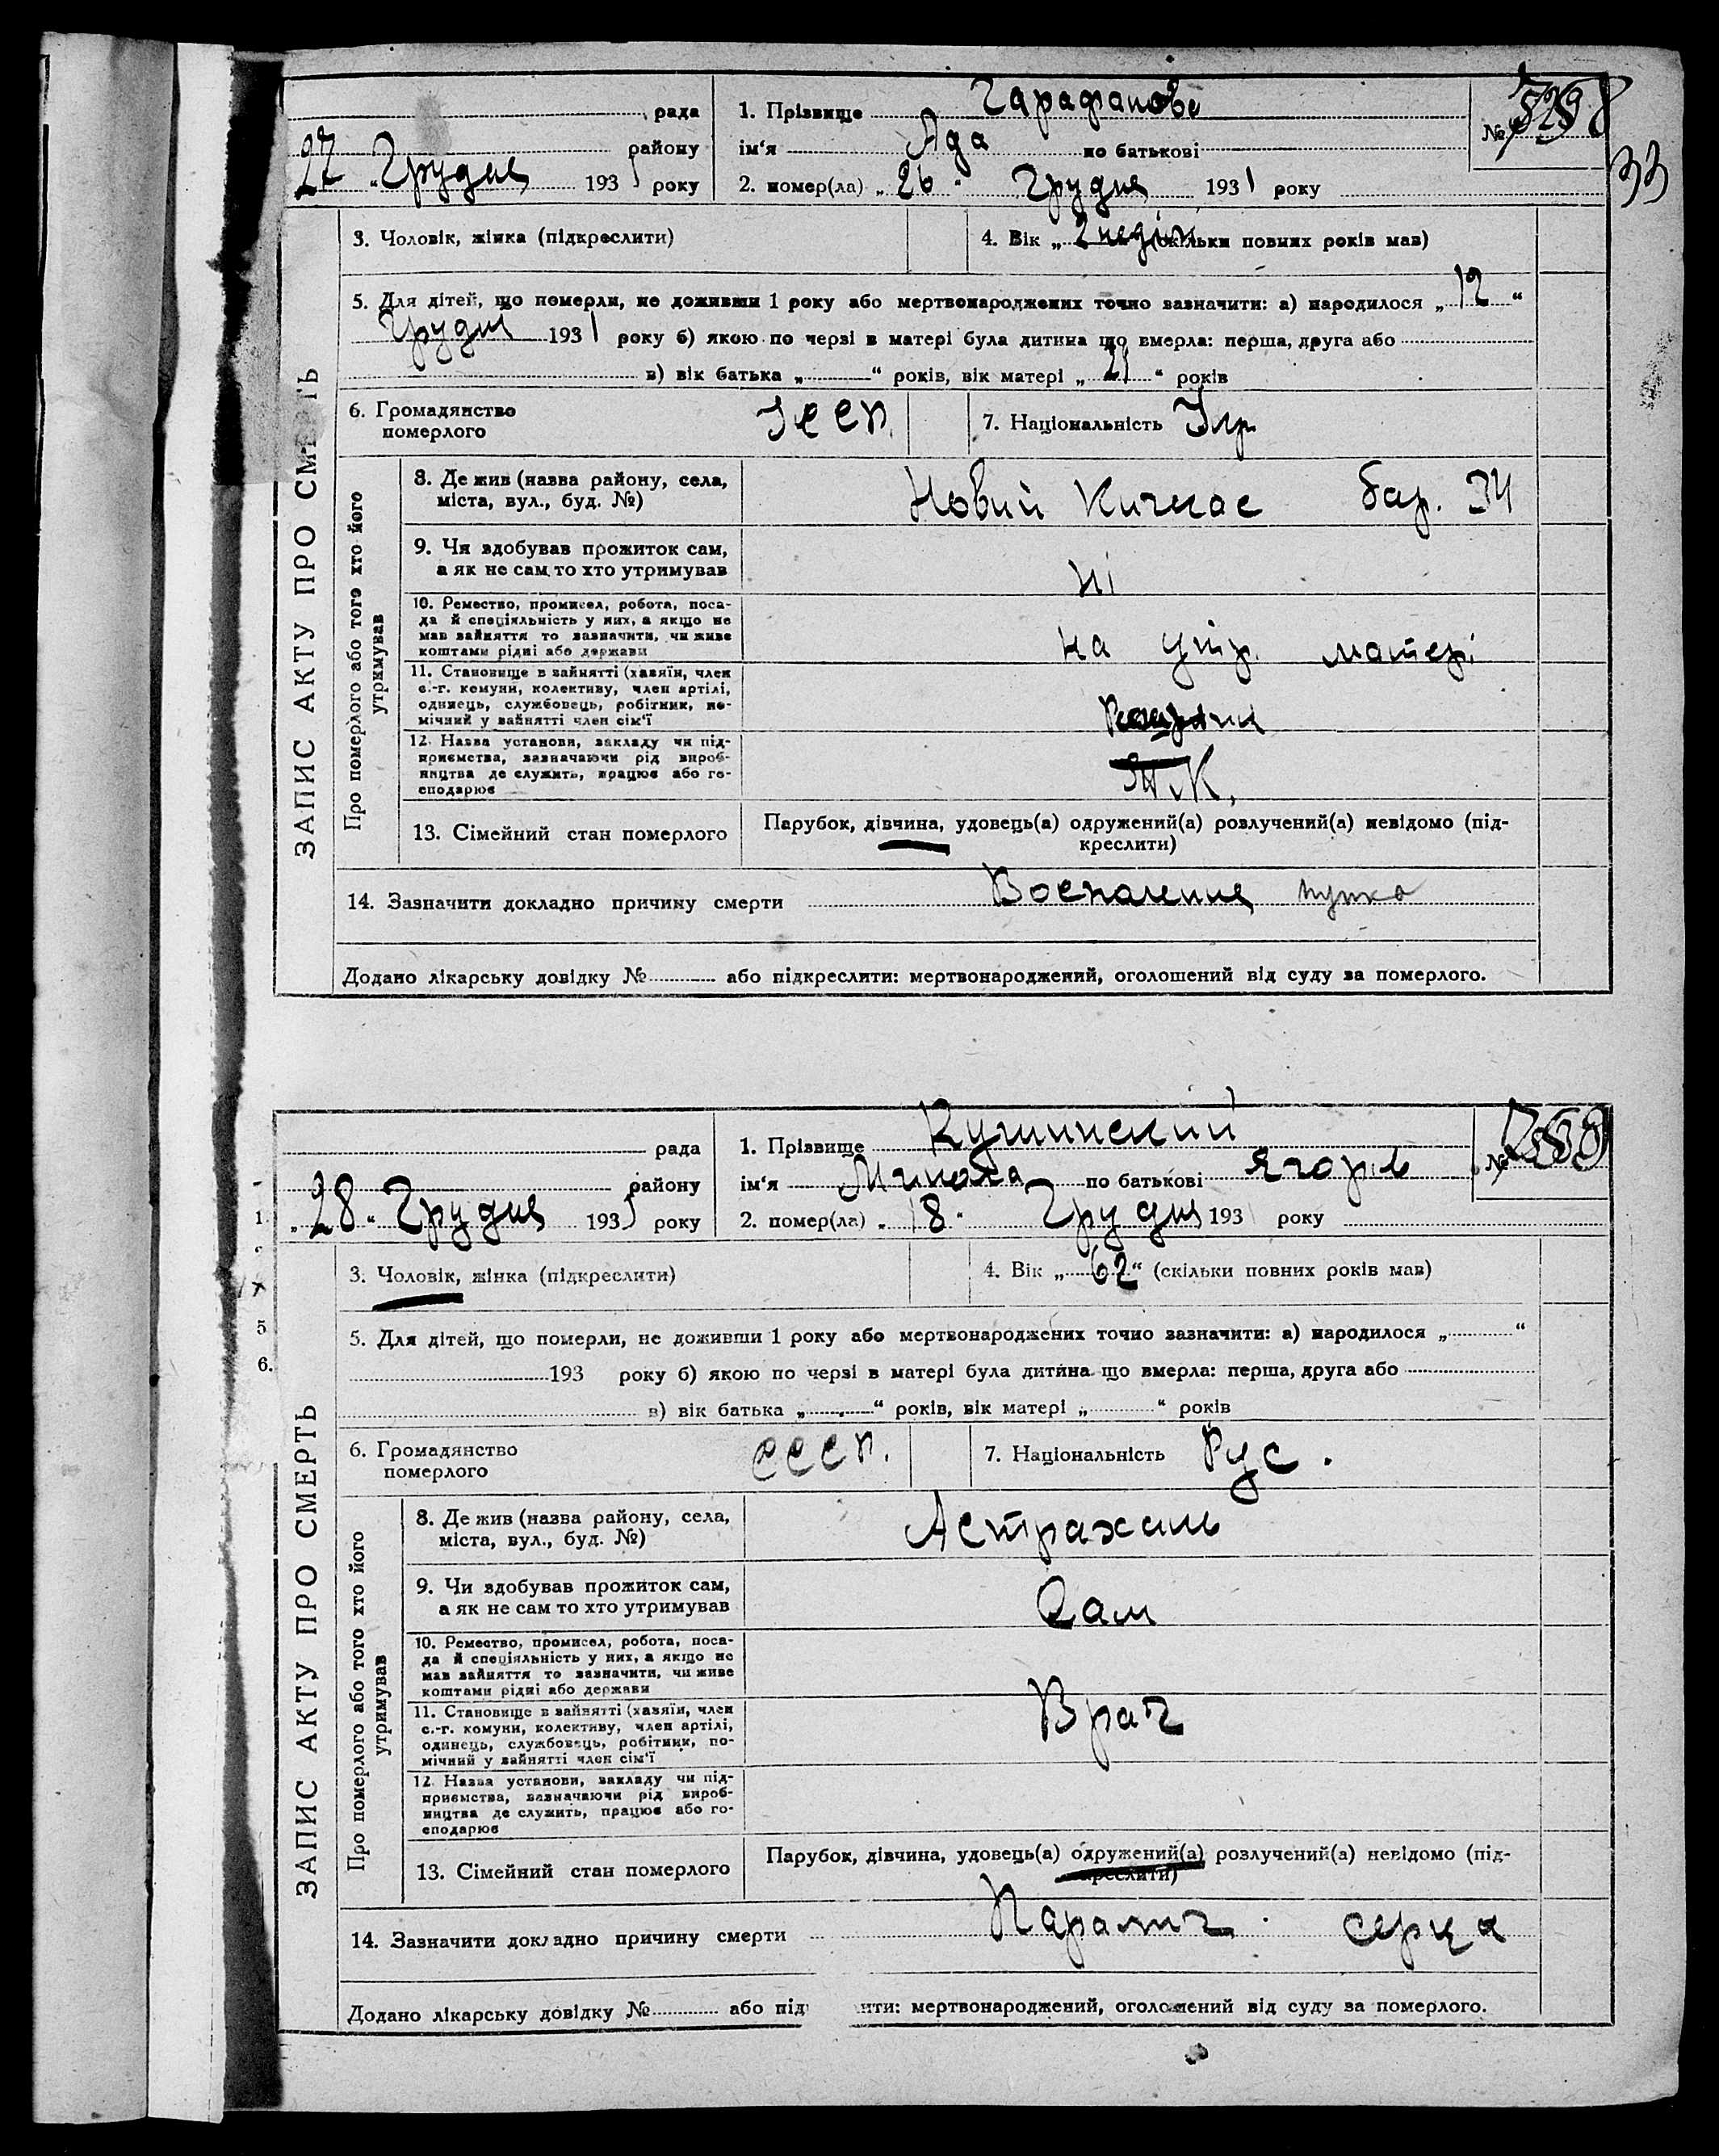 рада
району
27 „ Грудня 1931 року
1. Прізвище
ім'я Ада по батькові
2. помер(ла) „ 26 " Грудня 1931 року
№
33
ЗАПИС АКТУ ПРО СМ ТЬ
3. Чоловік, жінка (підкреслити)
4. Вік „ 2 неділі (скільки повних років мав)
5. Для дітей, що померли, не доживши 1 року або мертвонароджених точно зазначити: а) народилося „ 12 "
Грудня 1931 року б) якою по черзі в матері була дитина що вмерла: перша, друга або
в) вік батька „ " років, вік матері „ 21 " років
6. Громадянство
померлого
УССР.
7. Національність Укр
Про померлого або того хто його
утримував
8. Де жив (назва району, села,
міста, вул., буд. №)
Новий Кичкас бар. 34
9. Чи здобував прожиток сам,
а як не сам, то хто утримував
ні
10. Ремество, промисел, робота, поса-
да й спеціяльність у них, а якщо не
мав зайняття то зазначити, чи живе
коштами рідні або держави
на утр. матері
11. Становище в зайнятті (хазяїн, член
с.-г. комуни, колективу, член артілі,
одинець, службовець, робітник, по-
мічний у зайнятті член сім'ї
12. Назва установи, закладу чи під-
приємства, зазначаючи рід вироб-
ництва де служить, працює або го-
сподарює
13. Сімейний стан померлого
Парубок, дівчина, удовець(а) одружений(а) розлучений(а) невідомо (під-
креслити)
14. Зазначити докладно причину смерти Воспаление пупка
Додано лікарську довідку № або підкреслити: мертвонароджений, оголошений від суду за померлого.
рада
району
„ 28 " Грудня 1931 року
1. Прізвище Кушинский
ім'я Микола по батькові Ягорів
2. помер(ла) „ 18 " Грудня 193 року
№
ЗАПИС АКТУ ПРО СМЕРТЬ
3. Чоловік, жінка (підкреслити)
4. Вік „ 62 " (скільки повних років мав)
5. Для дітей, що померли, не доживши 1 року або мертвонароджених точно зазначити: а) народилося „ "
193 року б) якою по черзі в матері була дитина що вмерла: перша, друга або
в) вік батька „ " років, вік матері „ " років
6. Громадянство
померлого
СССР.
7. Національність Рус.
Про померлого або того хто його
утримував
8. Де жив (назва району, села,
міста, вул., буд. №)
Астрахань
9. Чи здобував прожиток сам,
а як не сам то хто утримував
Сам
10. Ремество, промисел, робота, поса-
да й спеціяльність у них, а якщо не
мав зайняття то зазначити, чи живе
коштами рідні або держави
11. Становище в зайнятті (хазяїн, член
с.-г. комуни, колективу, член артілі,
одинець, службовець, робітник, по-
мічний у зайнятті член сім'ї
Врач
12. Назва установи, закладу чи під-
приємства, зазначаючи рід вироб-
ництва де служить, працює або го-
сподарює
13. Сімейний стан померлого
Парубок, дівчина, удовець(а) одружений(а) розлучений(а) невідомо (під-
креслити)
14. Зазначити докладно причину смерти Паралич серця
Додано лікарську довідку № або під ити: мертвонароджений, оголошений від суду за померлого.